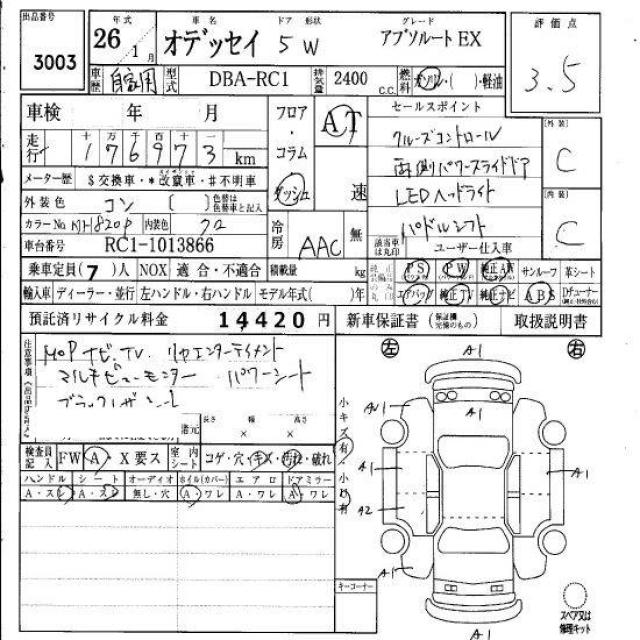 出品番号 3003
年式 26年 1月
車名 オデッセイ
ドア 形状 5W
グレード アブソルートEX
評価点 3.5
車歴 自家用
型式 DBA-RC1
排気量 2400 c.c.
燃料 ガソリン・( )・軽油
車検 年 月
フロア・コラム・ダッシュ
AT
速
セールスポイント
クルーズコントロール
両側パワースライドドア
LEDヘッドライト
パドルシフト
該当車は丸印 ユーザー仕入車
外装 C
内装 C
走行 十 万 千 百 十
176973 km
メーター歴 $交換車・*改竄車・#不明車
外装色 コン ( )
色替は色替車と記入
カラーNo. NH820P 内装色 クロ
車台番号 RC1-1013866
冷房 AAC 無
乗車定員(7)人 NOX 適合・不適合 積載量 kg
PS PW 純正AW サンルーフ 革シート
輸入車 ディーラー・並行 左ハンドル・右ハンドル モデル年式( )年
エアバック 純正TV 純正ナビ ABS
預託済リサイクル料金 14420円
新車保証書 (保証欄完備のもの) 取扱説明書
注意事項
MOPナビ.TV. リヤエンターテイメント
マルチビューモニター パワーシート
長さ 幅 高さ
× ×
検査員記入 FW A・X要ス
室内シート コゲ・穴・キズ・汚れ・破れ
ハンドル シート オーディオ ホイル(カバー) エアロ ドアミラー
A・スレ A・スレ 無し・穴 A・ワレ A・ワレ A・ワレ
小キズ有・小凹有
キーコーナー
左 右
A1
A1
A1
A1
A2
A1
A1
A1
スペア又は修理キット